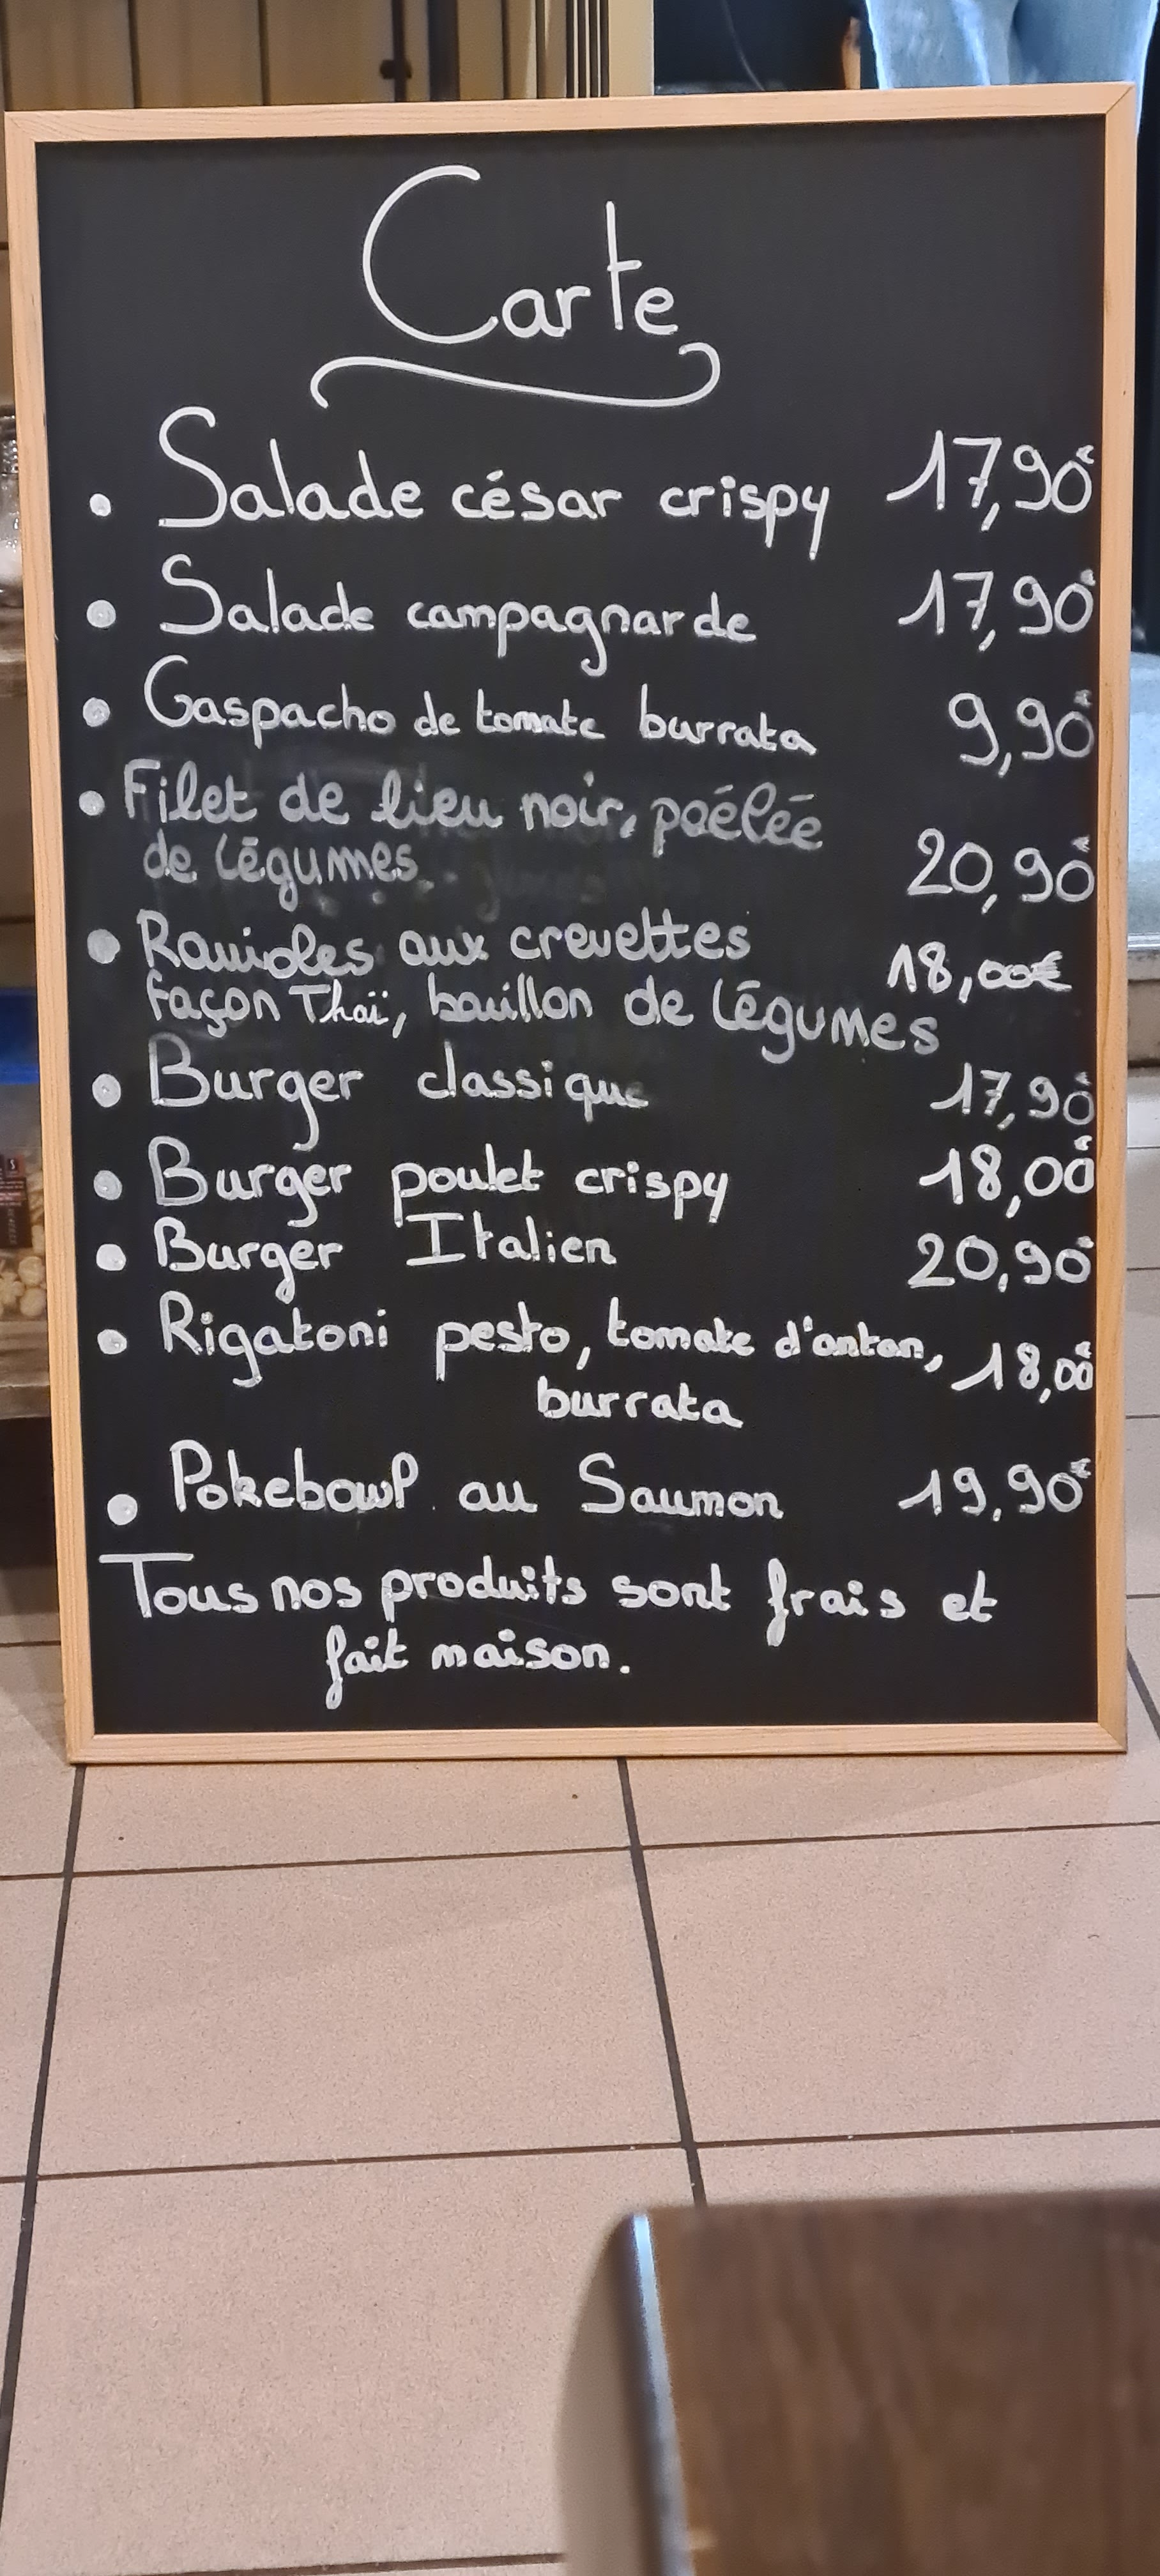 Carte
• Salade césar crispy 17,90€
• Salade campagnarde 17,90€
• Gaspacho de tomate burrata 9,90€
• Filet de lieu noir, poélée
de légumes 20,90€
• Ravioles aux crevettes
façon Thaï, bouillon de légumes 18,00€
• Burger classique 17,90€
• Burger poulet crispy 18,00€
• Burger Italien 20,90€
• Rigatoni pesto, tomate d'antan, 18,00€
burrata
• Pokebowl au Saumon 19,90€
Tous nos produits sont frais et
fait maison.